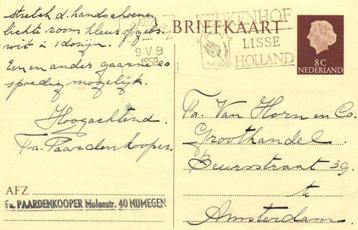 Stretch d. handschoenen
lichte room kleur of gebr.
wit 1 dozijn.
Een en ander gaarne zo
spoedig mogelijk.
Hoogachtend
Fa. Paardenkooper.
AFZ
Fa. PAARDENKOOPER Molenstr. 40 NIJMEGEN
BRIEFKAART
9 V 9
1958
KEUKENHOF
LISSE
HOLLAND
8 C
NEDERLAND
Fa. Van Horn en Co.
Groothandel
Beursstraat 39
te
Amsterdam.